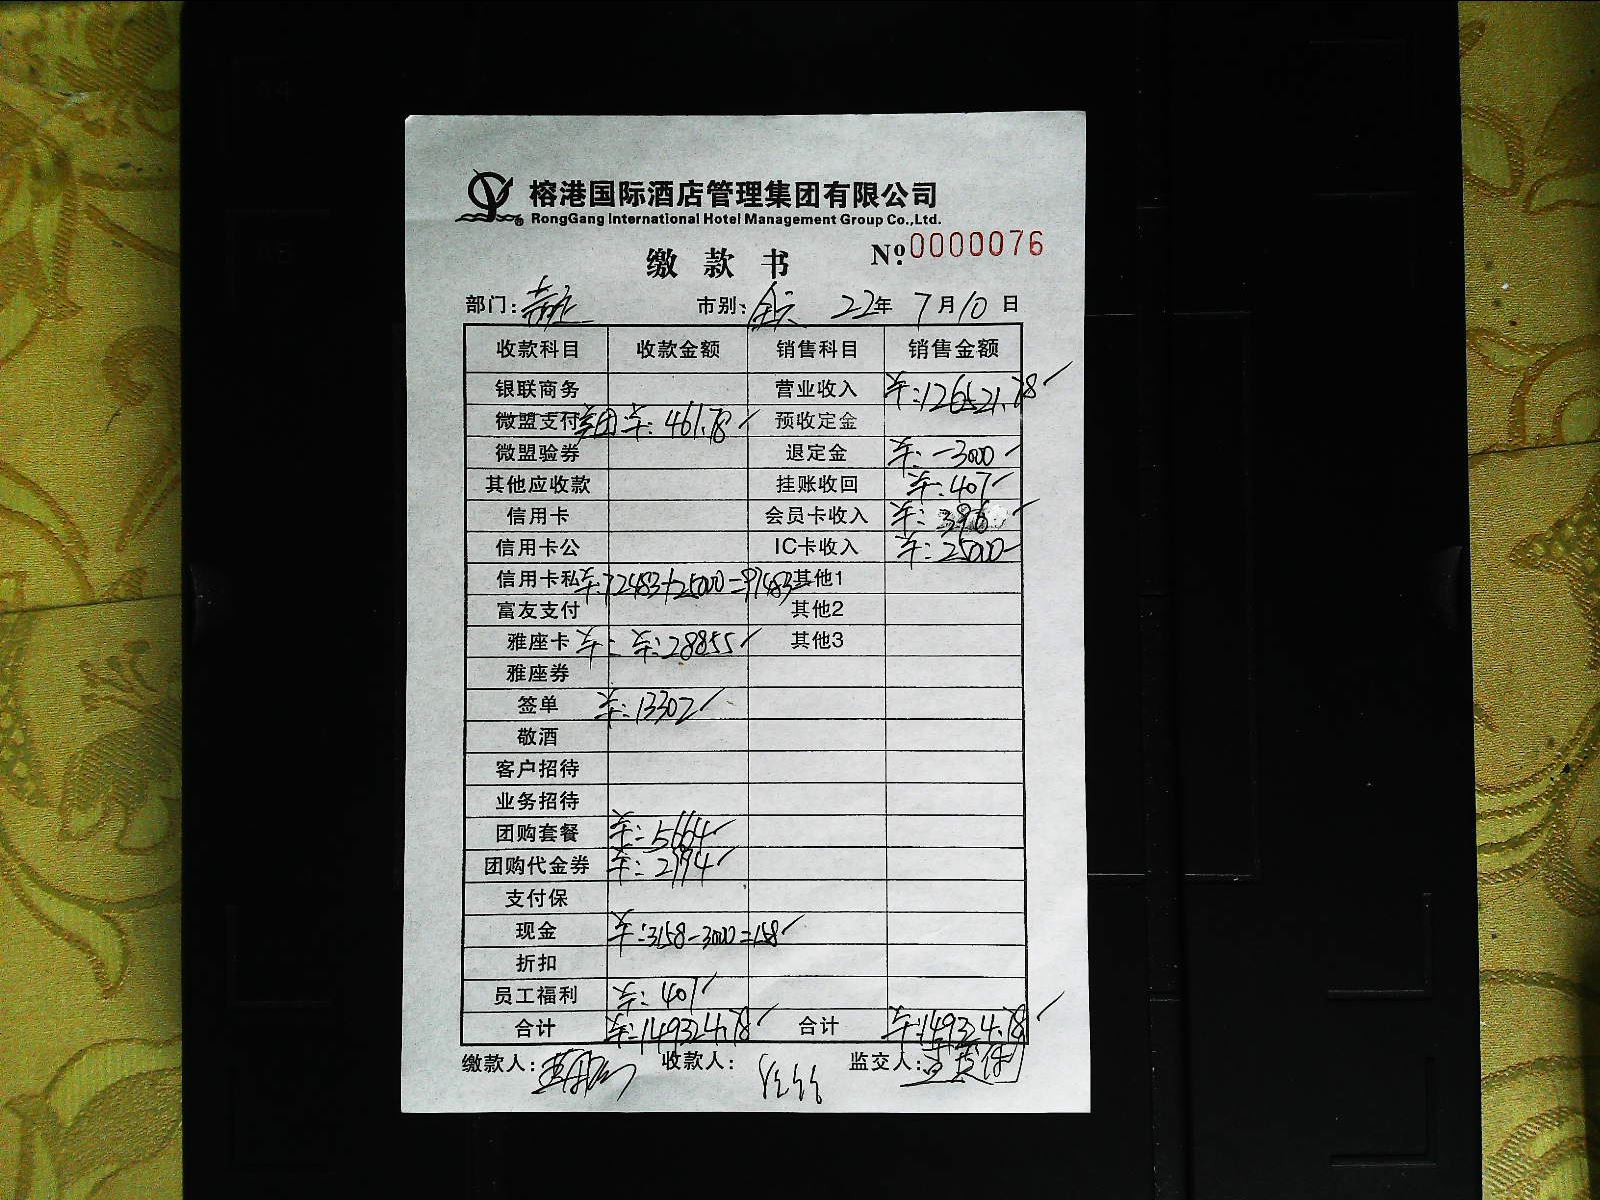 榕港国际酒店管理集团有限公司
RongGang International Hotel Management Group Co.,Ltd.
缴款书 Nº 0000076
部门: 市别: 22年 7月10日
收款科目 收款金额 销售科目 销售金额
银联商务 营业收入 卡:126521.78
微盟支付 美团 卡: 461.78 预收定金
微盟验券 退定金 卡: -3000
其他应收款 挂账收回 卡: 401
信用卡 会员卡收入 卡:
信用卡公 IC卡收入 卡: 25000
信用卡私 卡:72483+25000=97483 其他1
富友支付 其他2
雅座卡 卡: 28855 其他3
雅座券
签单 卡: 13302
敬酒
客户招待
业务招待
团购套餐 卡: 5664
团购代金券 卡: 2994
支付保
现金 卡:3158-3000=158
折扣
员工福利 卡: 401
合计 卡:149324.78 合计 卡:149324.78
缴款人: 收款人: 监交人: